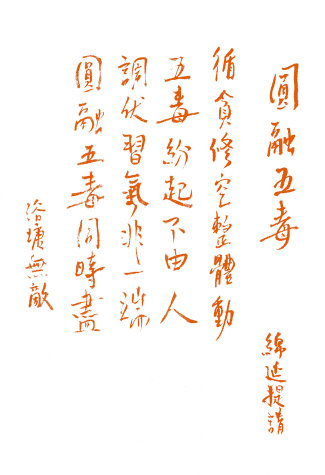 圓融五毒
綿延提請
循貪修空整體動
五毒紛起不由人
調伏習氣非一端
圓融五毒同時盡
無敵